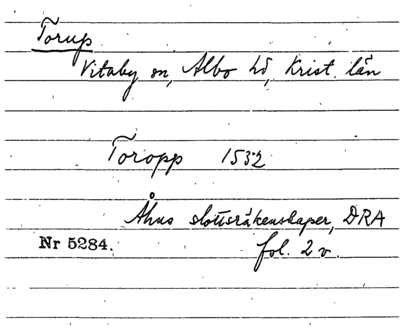 Torup
Vitaby sn, Albo hd, Krist. län
Toropp 1532
Åhus slottsräkenskaper, DRA
Nr 5284. fol. 2 v.